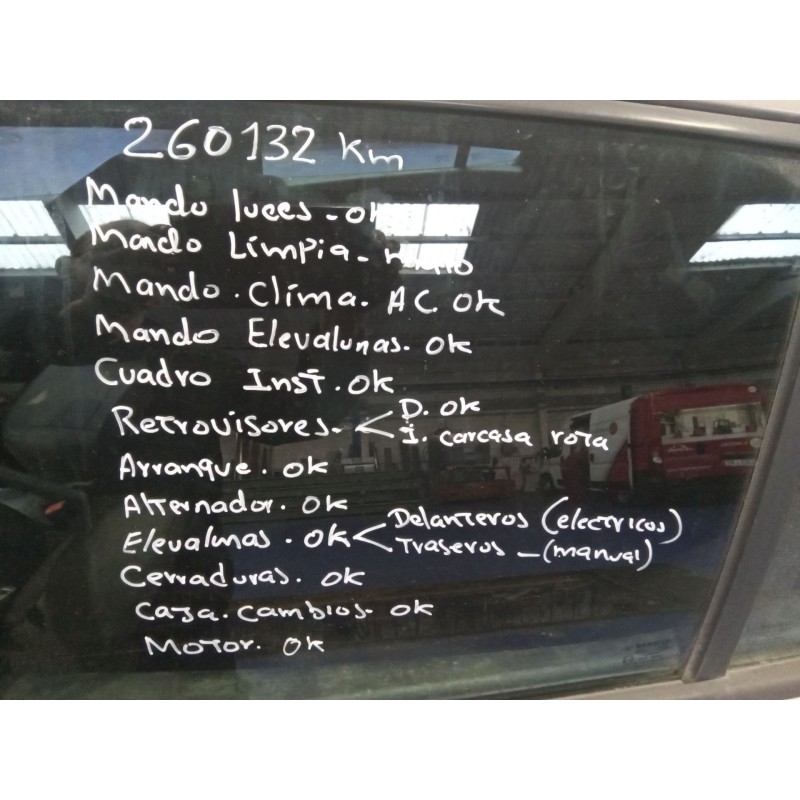 260132 Km
Mando luces - OK
Mando Limpia -
Mando . Clima . AC. OK
Mando Elevalunas. OK
Cuadro Inst. OK
Retrovisores - < D. OK
I. carcasa rota
Arranque . OK
Alternador. OK
Elevalunas . OK < Delanteros (electricos)
Traseros - (manual)
Cerraduras. OK
Caja. cambios - OK
Motor. OK